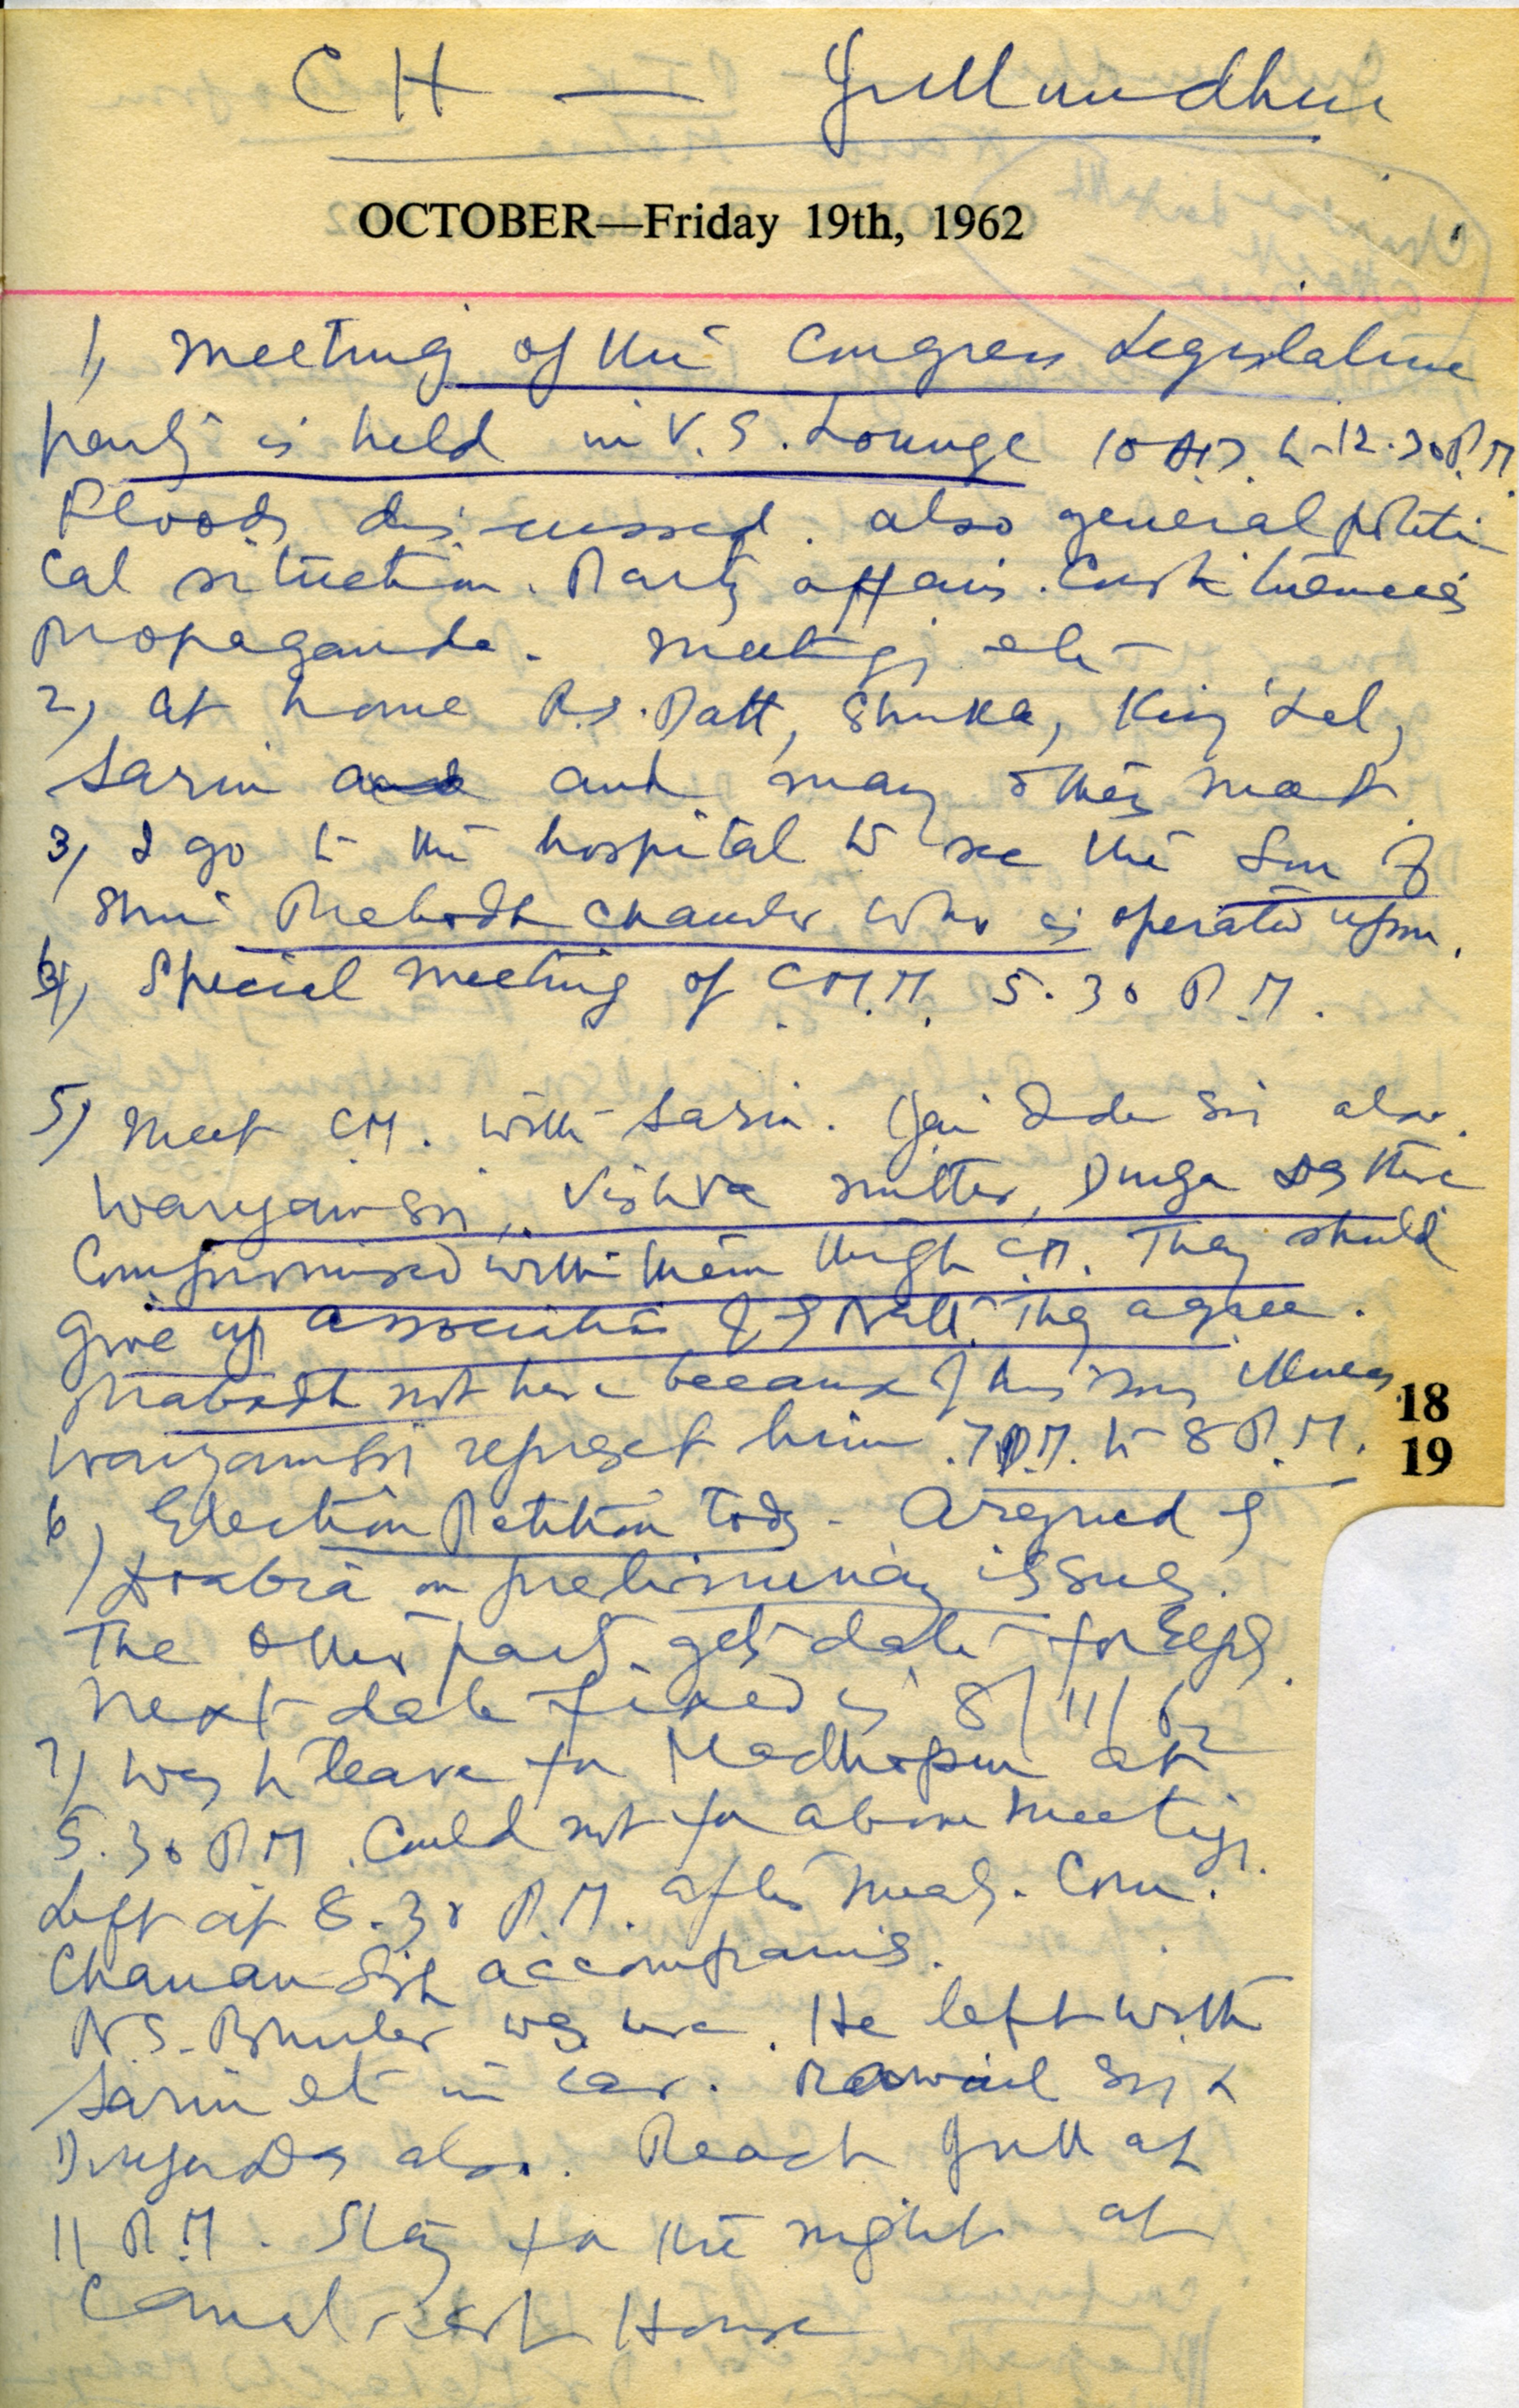 CH — Jullundhur
OCTOBER—Friday 19th, 1962
1) Meeting of the Congress Legislative
party is held in V.S. Lounge 10 AM to 12.30 P.M.
Floods discussed. also general politi
cal situation. Party affairs. Constituencies
Propaganda. Meetings etc
2) at home R.S. Datt, Lal,
Sarin and many others meet.
3) I go to the hospital to see the Son of
Shri Prabodh Chander who is operated upon.
4) Special meeting of C.M. 5.30 P.M.
5) Meet CM. with Sarin. also.
Vishva Mitter, Durga Das there
Compromised with them through C.M. They should
give up association of They agree.
Prabodh not here because of his sons illness
represet him. 7 P.M. to 8 P.M.
6) Election Petition Today - Aregued
on preliminary issues.
The other party gets date for
Next date fixed is 8/11/62
7) Was to leave for Madhopur at
5.30 PM. Could not for above meetings.
Left at 8.30 P.M. after meals. Com.
Chanan Singh accompanies.
was here. He left with
Sarin etc in car.
Durga Das also. Reach Jull at
11 P.M. Stay for the night at
Canal rest House
18
19